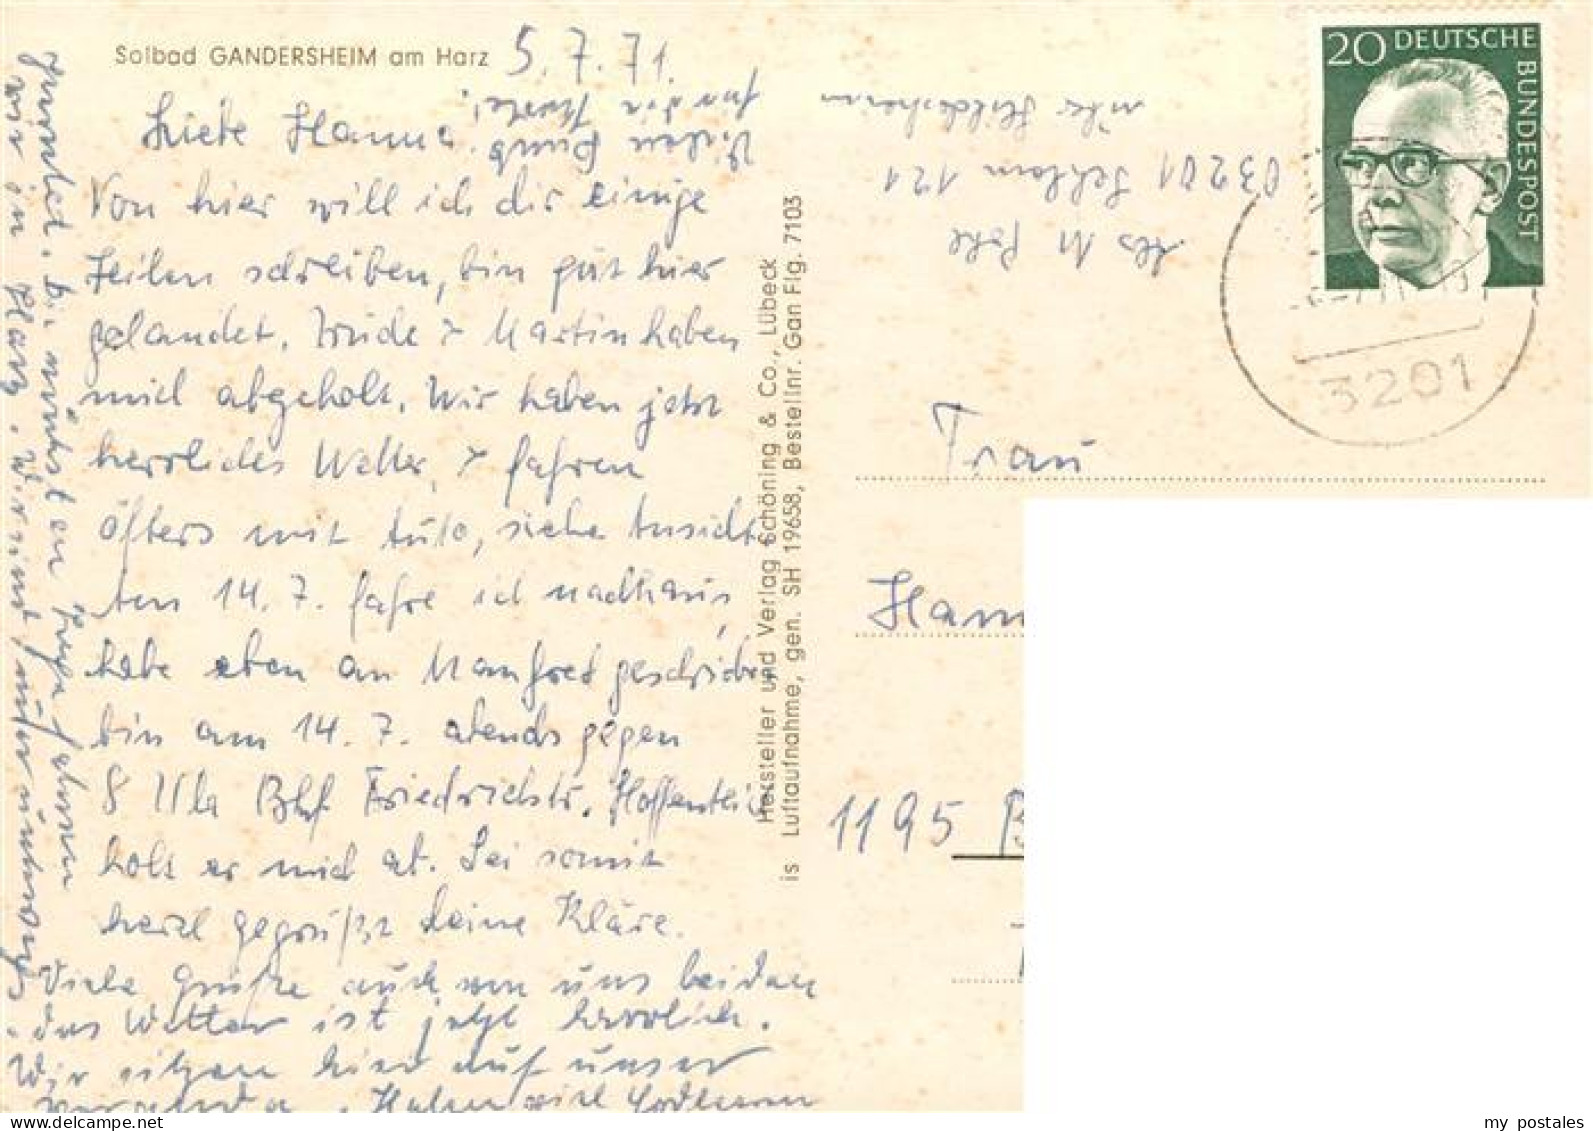 Solbad GANDERSHEIM am Harz
5.7.71.
Liebe Hanna.
Von hier will ich dir einige
Zeilen schreiben, bin gut hier
gelandet. Trude & Martin haben
mich abgeholt. Wir haben jetzt
herrliches Wetter, & fahren
öfters mit Auto, siehe Ansicht
Am 14.7. fahre ich nachhaus,
habe eben an Manfred geschrieben
bin am 14.7. abends gegen
8 Uhr Bhf Friedrichstr. Hoffentlich
holt er mich ab. Sei somit
herzl gegrüßt deine Kläre.
Viele Grüße auch von uns beiden
das Wetter ist jetzt herrlich.
Wir sitzen hier auf unser
Veranda. Haben viel
wir in Harz. Wir sind unterwegs.
Vielen Dank
für die Karte!
Hersteller und Verlag Schöning & Co., Lübeck
is Luftaufnahme, gen. SH 19658, Bestellnr. Gan Flg. 7103
Abs M
03201 121
über Hildesheim
20 DEUTSCHE BUNDESPOST
3201
Frau
Hann
1195 B
my postales